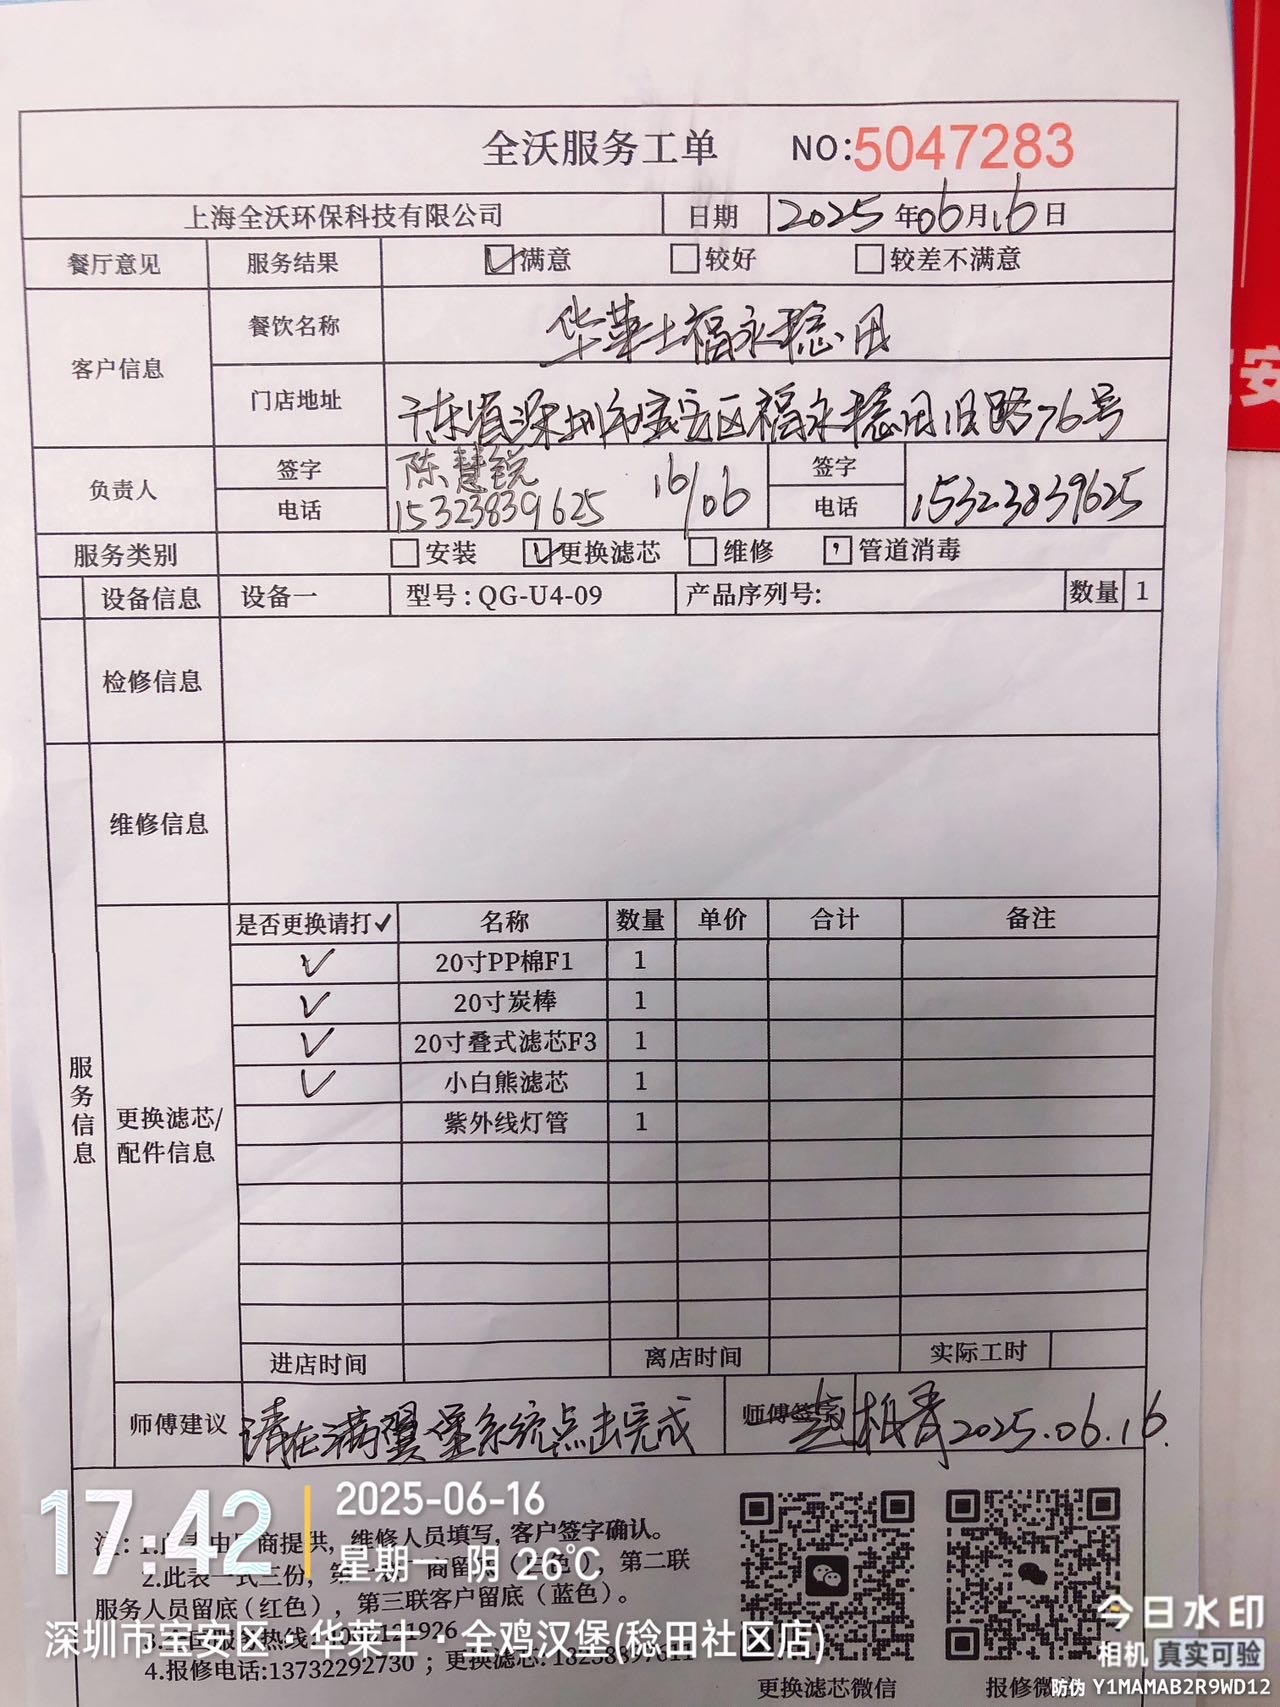 全沃服务工单 NO:5047283
上海全沃环保科技有限公司 日期 2025年06月16日
餐厅意见 服务结果 满意 较好 较差不满意
客户信息 餐饮名称 华莱士福永稔田
门店地址 广东省深圳市宝安区福永稔田旧路76号
负责人 签字 陈慧锐 16/06 签字
电话 15323839625 电话 15323839625
服务类别 安装 更换滤芯 维修 管道消毒
设备信息 设备一 型号:QG-U4-09 产品序列号: 数量 1
检修信息
维修信息
服务信息
更换滤芯/
配件信息
是否更换请打✓ 名称 数量 单价 合计 备注
✓ 20寸PP棉F1 1
✓ 20寸炭棒 1
✓ 20寸叠式滤芯F3 1
✓ 小白熊滤芯 1
紫外线灯管 1
进店时间 离店时间 实际工时
师傅建议 请在满翼堡系统点击完成 师傅签字 赵柏青 2025.06.16.
17:42
2025-06-16
星期一 阴 26℃
深圳市宝安区·华莱士·全鸡汉堡(稔田社区店)
商提供，维修人员填写，客户签字确认。
2.此表一式三份，第 商留 第二联
服务人员留底（红色），第三联客户留底（蓝色）。
4.报修电话:13732292730 ；更换滤芯:
更换滤芯微信 报修微
今日水印
相机 真实可验
防伪 Y1MAMAB2R9WD12
安